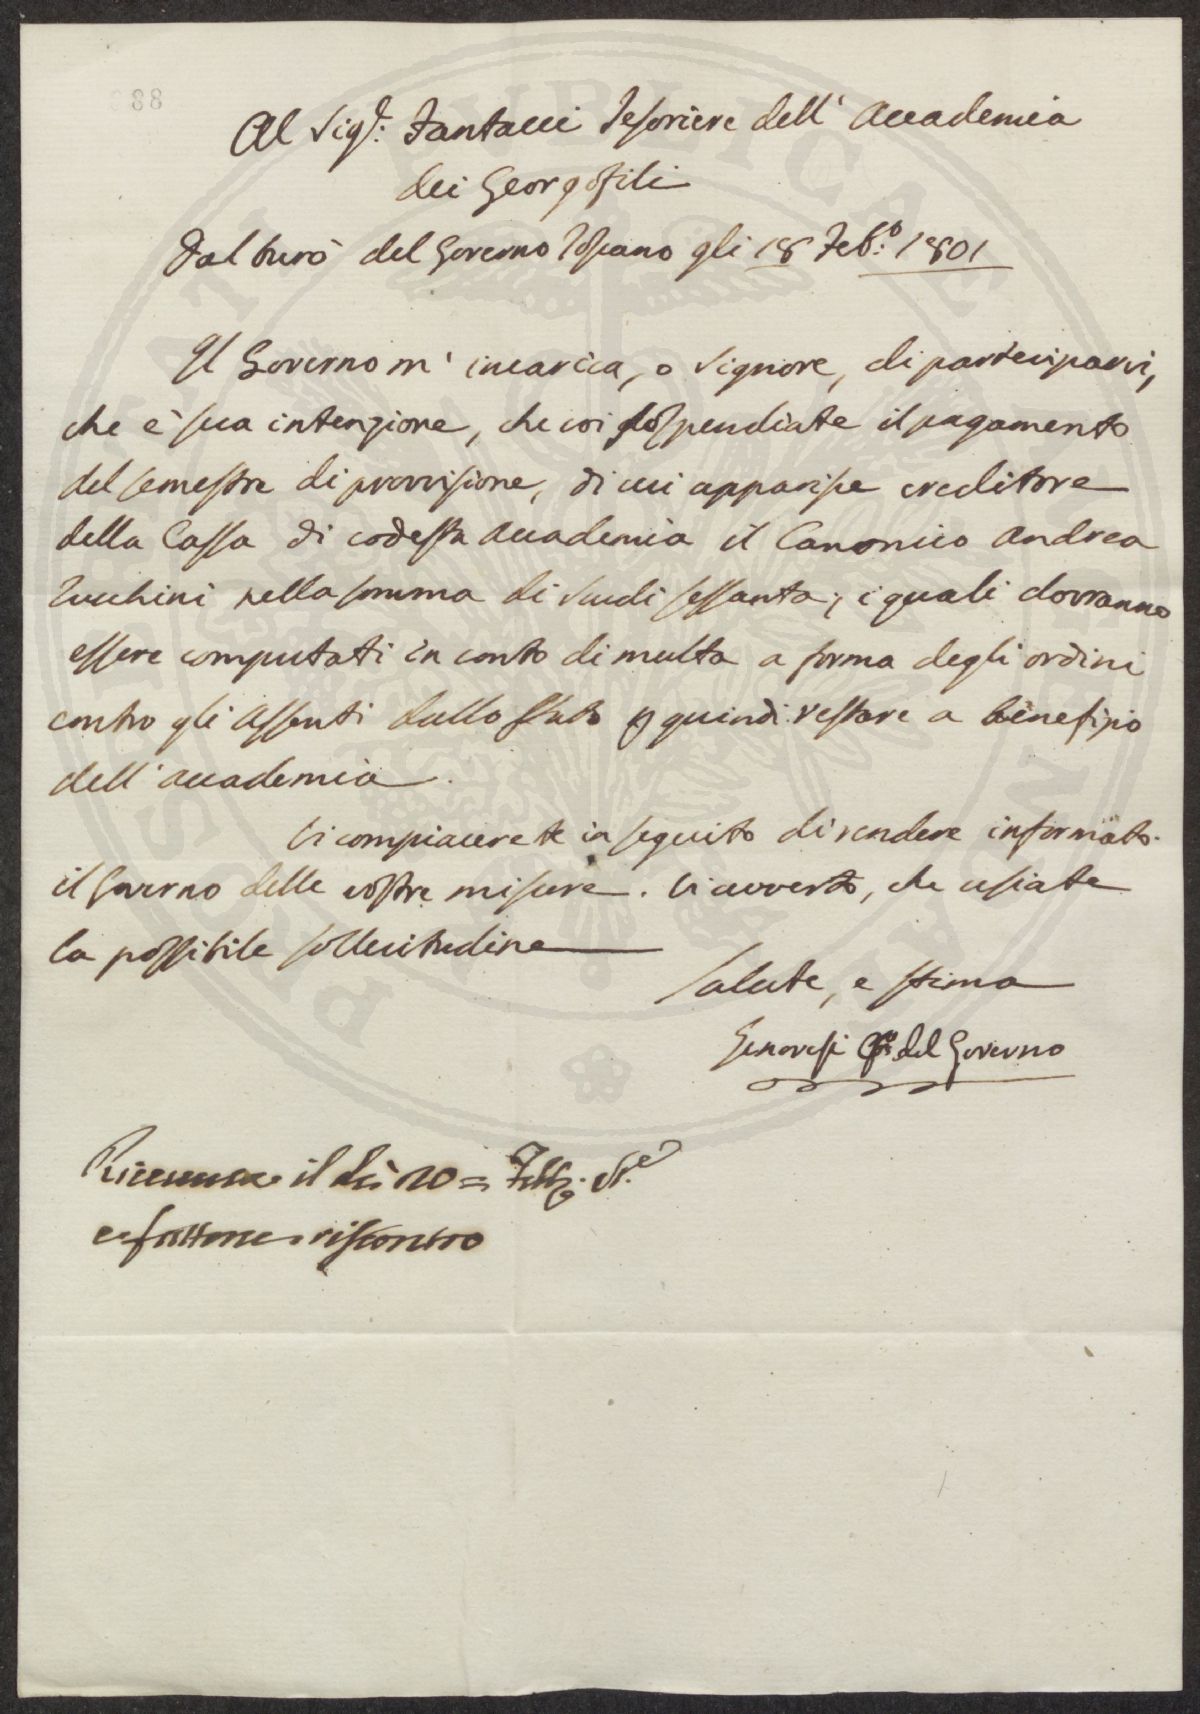 888
Al Sig.r Fantacci Tesoriere dell' Accademia
dei Georgofili
Dal burò del Governo Toscano gli 18 Feb.o 1801
Il Governo m' incarica, o Signore, di parteciparvi,
che è sua intenzione, che voi sospendiate il pagamento
del semestre di provvisione, di cui apparisce creditore
della Cassa di codesta Accademia il Canonico Andrea
Zucchini nella somma di scudi sessanta; i quali dovranno
essere computati in conto di multa a forma degli ordini
contro gli Assenti dallo Stato e quindi restare a benefizio
dell' Accademia.
Vi compiacerete in seguito di rendere informato
il Governo delle vostre misure. Vi avverto, che usiate
la possibile sollecitudine
Salute, e stima
Genovesi del Governo
il dì 20 = Febb.
riscontro